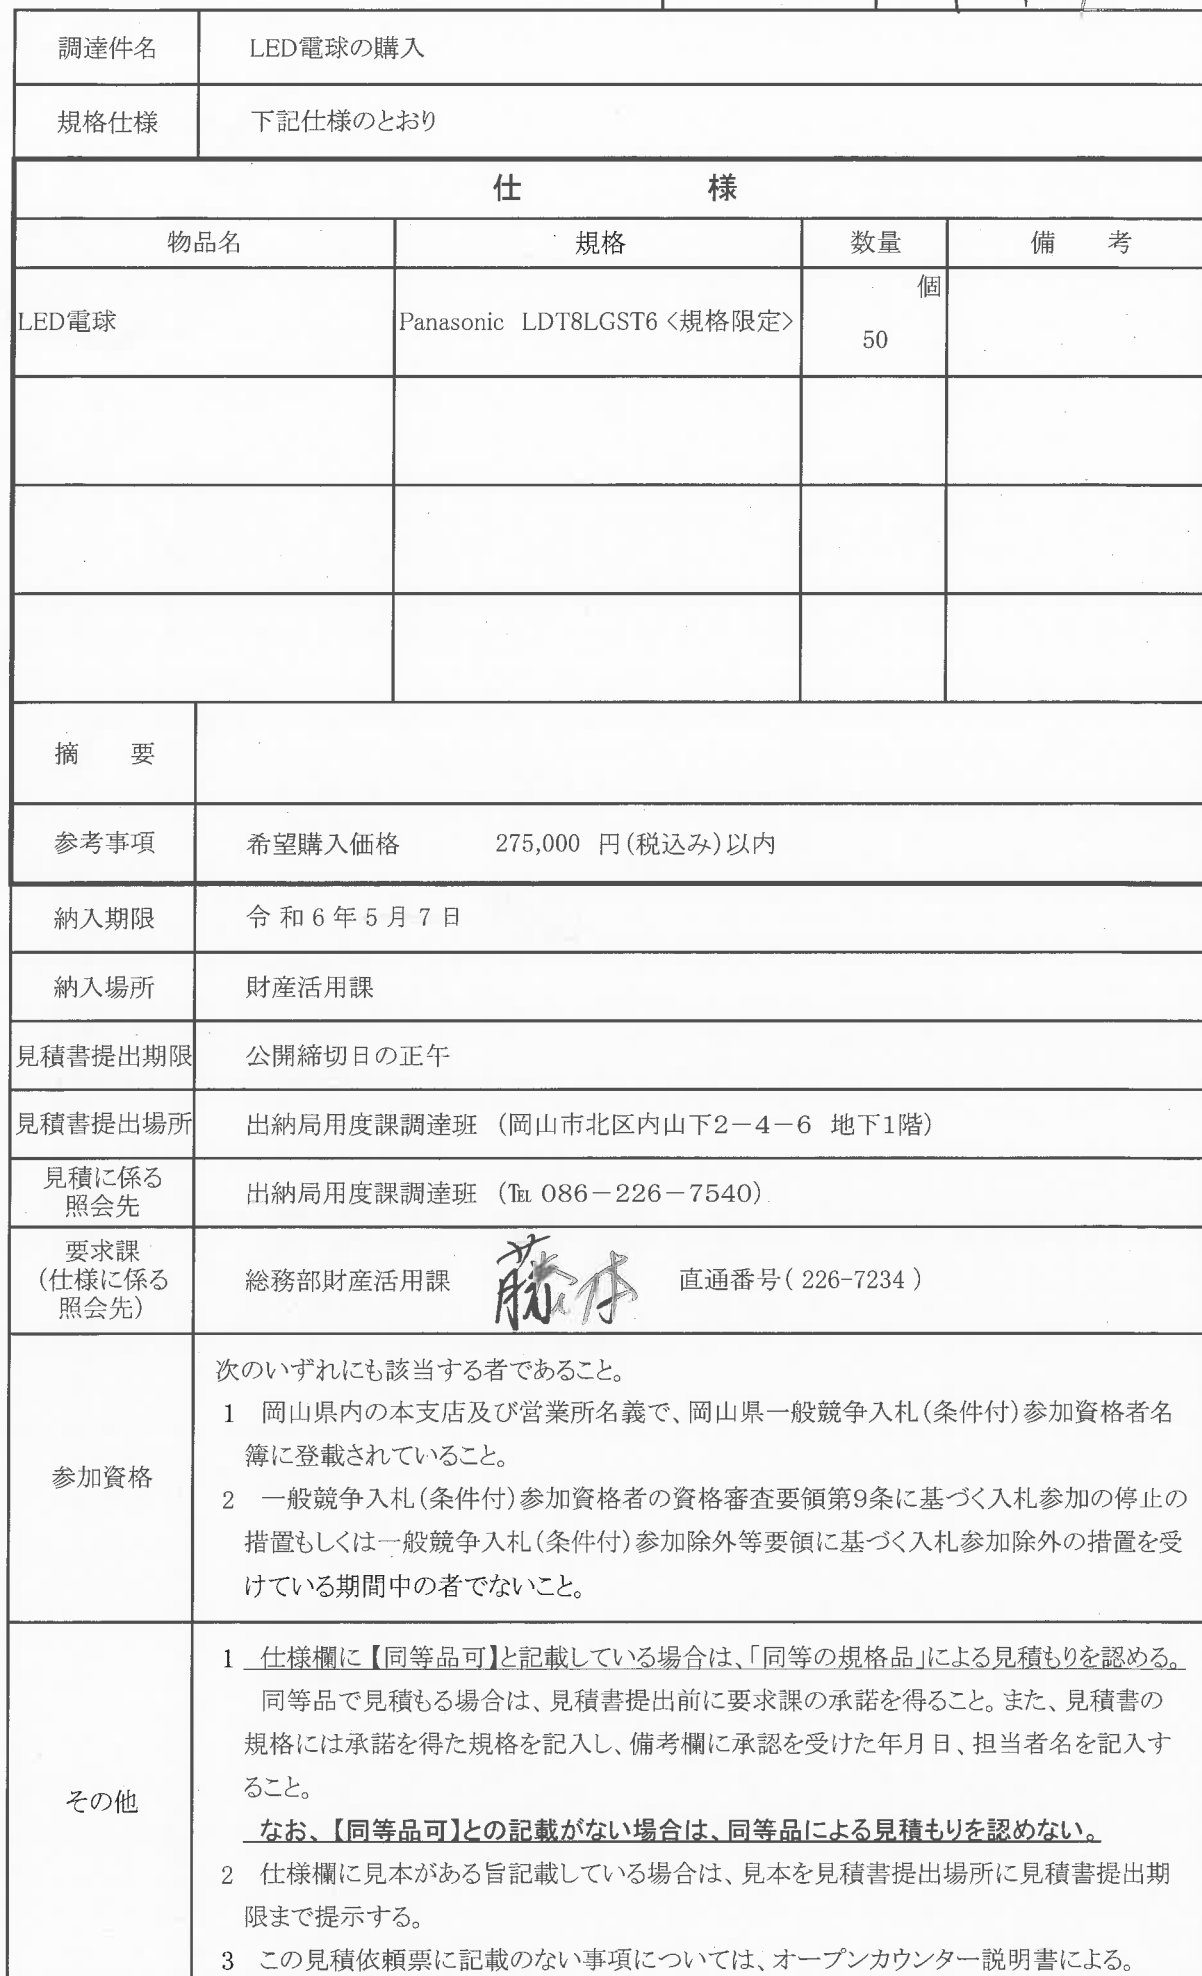 調達件名 LED電球の購入
規格仕様 下記仕様のとおり
仕 様
物品名 規格 数量 備 考
個
LED電球 Panasonic LDT8LGST6 <規格限定>
50
摘 要
参考事項 希望購入価格 275,000 円(税込み)以内
納入期限 令和6年5月7日
納入場所 財産活用課
見積書提出期限 公開締切日の正午
見積書提出場所 出納局用度課調達班 (岡山市北区内山下2-4-6 地下1階)
見積に係る
照会先
出納局用度課調達班 (℡ 086-226-7540)
要求課
(仕様に係る
照会先)
総務部財産活用課 藤本 直通番号( 226-7234 )
参加資格
次のいずれにも該当する者であること。
1 岡山県内の本支店及び営業所名義で、岡山県一般競争入札(条件付)参加資格者名
簿に登載されていること。
2 一般競争入札(条件付)参加資格者の資格審査要領第9条に基づく入札参加の停止の
措置もしくは一般競争入札(条件付)参加除外等要領に基づく入札参加除外の措置を受
けている期間中の者でないこと。
その他
1 仕様欄に【同等品可】と記載している場合は、「同等の規格品」による見積もりを認める。
同等品で見積もる場合は、見積書提出前に要求課の承諾を得ること。また、見積書の
規格には承諾を得た規格を記入し、備考欄に承認を受けた年月日、担当者名を記入す
ること。
なお、【同等品可】との記載がない場合は、同等品による見積もりを認めない。
2 仕様欄に見本がある旨記載している場合は、見本を見積書提出場所に見積書提出期
限まで提示する。
3 この見積依頼票に記載のない事項については、オープンカウンター説明書による。